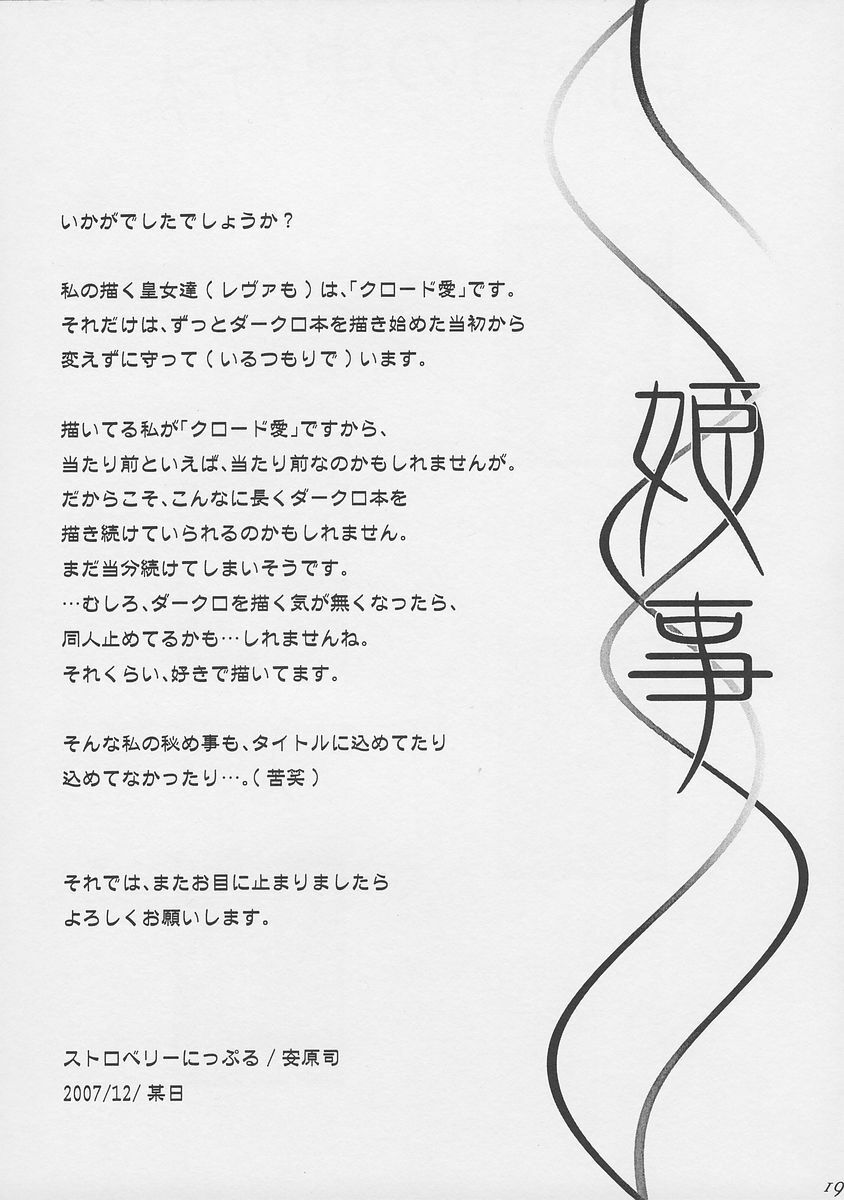 いかがでしたでしょうか?
私の描く皇女達(レヴァも)は、「クロード愛」です。
それだけは、ずっとダークロ本を描き始めた当初から
変えずに守って(いるつもりで)います。
描いてる私が「クロード愛」ですから、
当たり前といえば、当たり前なのかもしれませんが。
だからこそ、こんなに長くダークロ本を
描き続けていられるのかもしれません。
まだ当分続けてしまいそうです。
…むしろ、ダークロを描く気が無くなったら、
同人止めてるかも…しれませんね。
それくらい、好きで描いてます。
そんな私の秘め事も、タイトルに込めてたり
込めてなかったり…。(苦笑)
それでは、またお目に止まりましたら
よろしくお願いします。
ストロベリーにっぷる/安原司
2007/12/某日
姫事
19